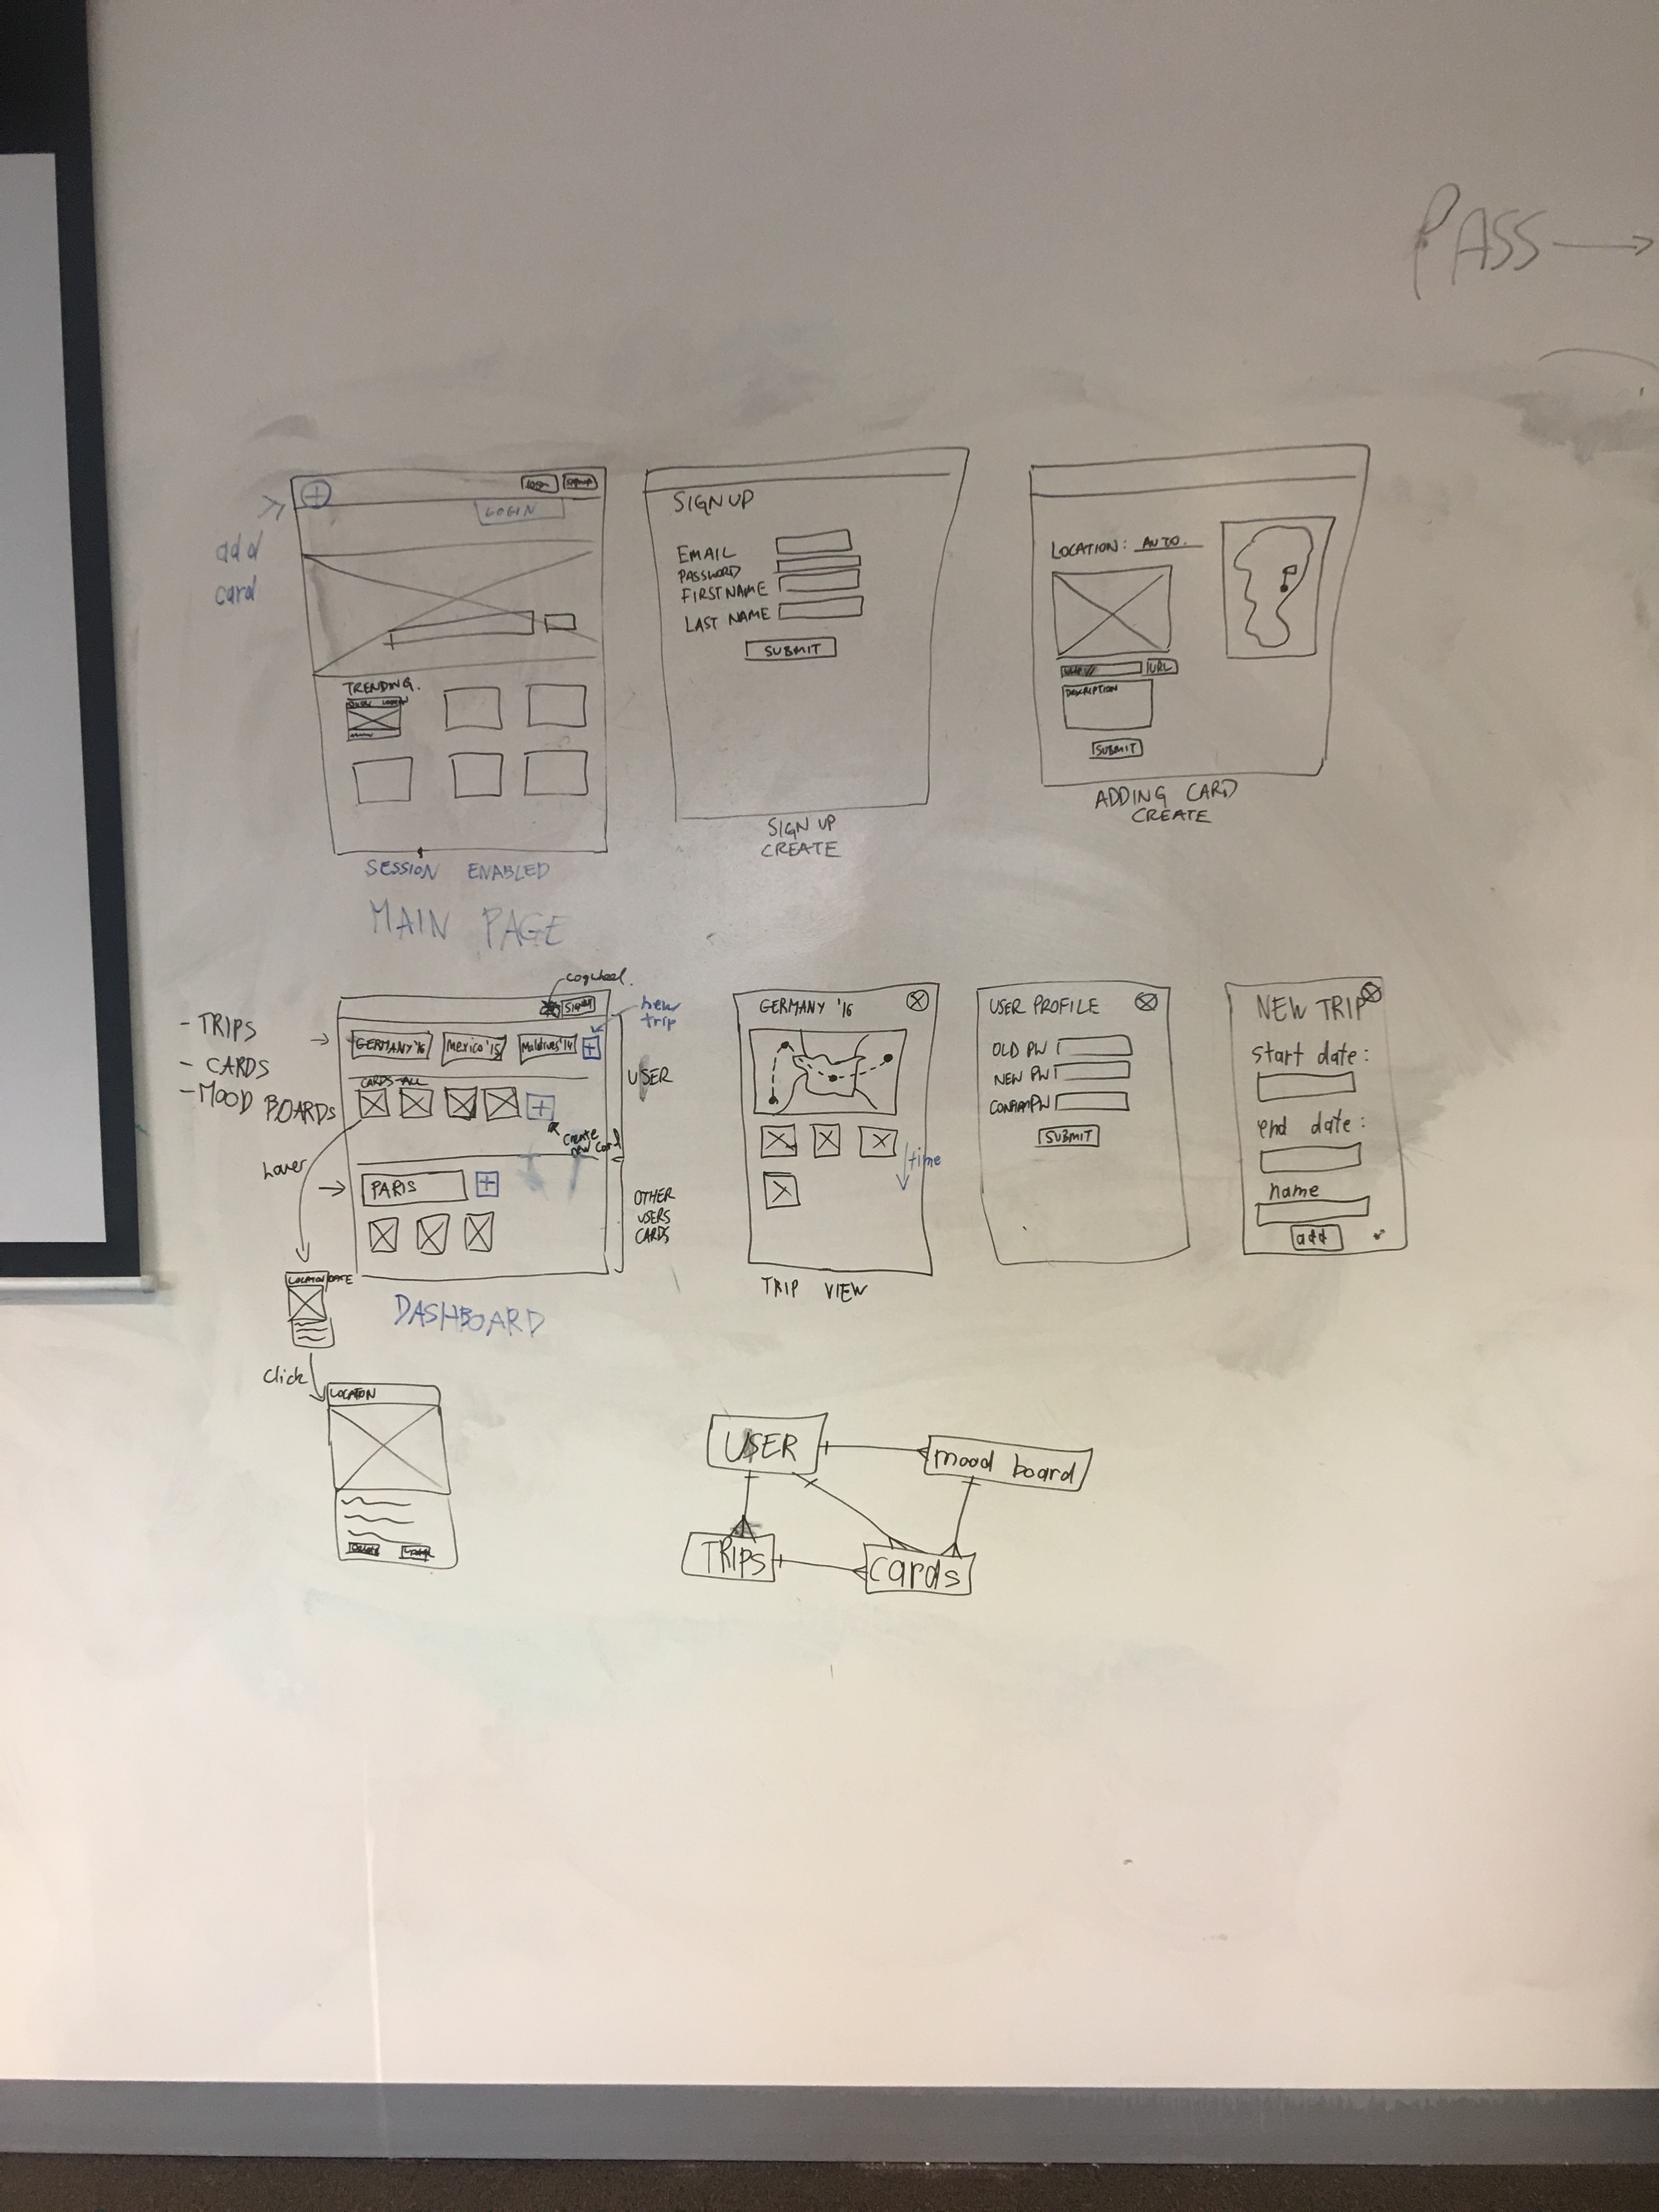 PASS
add
card
LOGIN
TRENDING.
SESSION ENABLED
MAIN PAGE
SIGN UP
EMAIL
PASSWORD
FIRST NAME
LAST NAME
SUBMIT
SIGN UP
CREATE
LOCATION: AUTO.
URL
DESCRIPTION
SUBMIT
ADDING CARD
CREATE
- TRIPS
- CARDS
- MOOD BOARDS
cogwheel.
new
trip
GERMANY '16
Mexico '15
Maldives '14
CARDS-ALL
create
new card
USER
PARIS
OTHER
USERS
CARDS
DASHBOARD
hover
LOCATION DATE
Click
LOCATION
GERMANY '16
time
TRIP VIEW
USER PROFILE
OLD PW
NEW PW
CONFIRM PW
SUBMIT
NEW TRIP
start date:
end date:
name
add
USER
mood board
TRIPS
cards